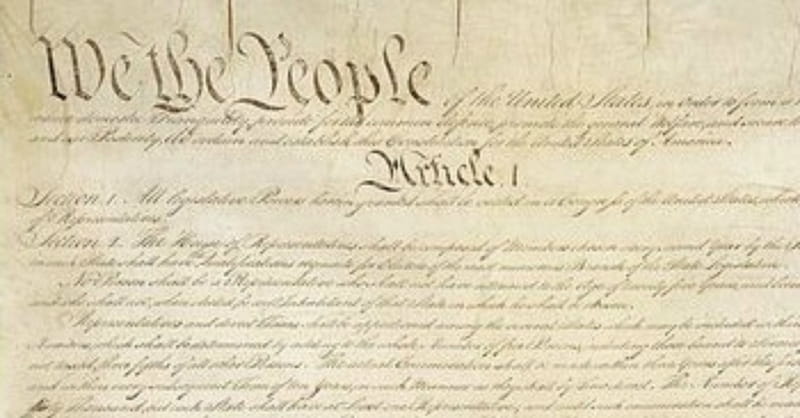 We the People of the United States, in Order to form a
insure domestic Tranquility, provide for the common defence, promote the general Welfare, and secure
and our Posterity, do ordain and establish this Constitution for the United States of America.
Article. I
Section. 1. All legislative Powers herein granted shall be vested in a Congress of the United States, which
of Representatives.
Section. 2. The House of Representatives shall be composed of Members chosen every second Year by the
in each State shall have Qualifications requisite for Electors of the most numerous Branch of the State Legislature.
No Person shall be a Representative who shall not have attained to the Age of twenty five Years, and been
and who shall not, when elected, be an Inhabitant of that State in which he shall be chosen.
Representatives and direct Taxes shall be apportioned among the several States which may be included within
Numbers, which shall be determined by adding to the whole Number of free Persons, including those bound to
not taxed, three fifths of all other Persons. The actual Enumeration shall be made within three Years after the
and within every subsequent Term of ten Years, in such Manner as they shall by Law direct. The Number of
thirty Thousand, but each State shall have at Least one Representative; and until such enumeration shall be